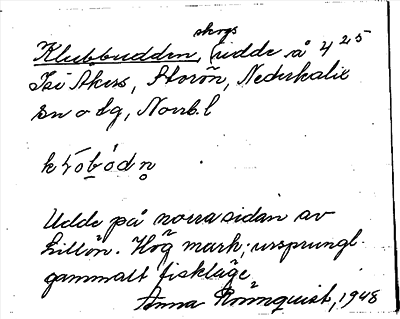 skogs
Klubbudden, udde å 4 25
Isi Akers, Storön, Nederkalix
sn o tg, Norrb. l
Udde på norra sidan av
Lillön. Hög mark; ursprungl.
gammalt fiskläge
Anna Rönnquist, 1948